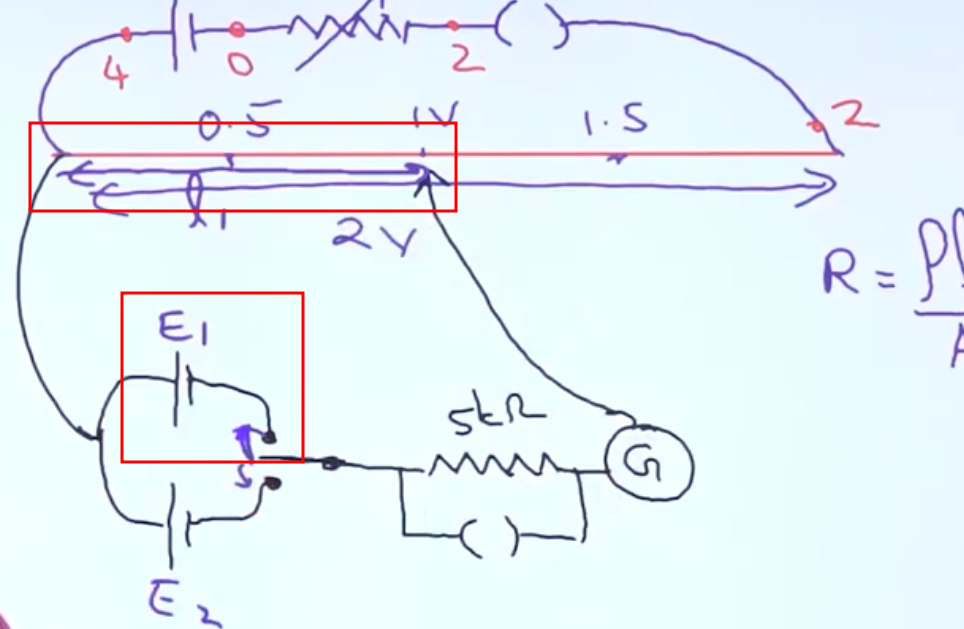 4 0 2
0.5 1V 1.5 2
l1
2V
R = ρl
A
E1
5kΩ
S G
E2